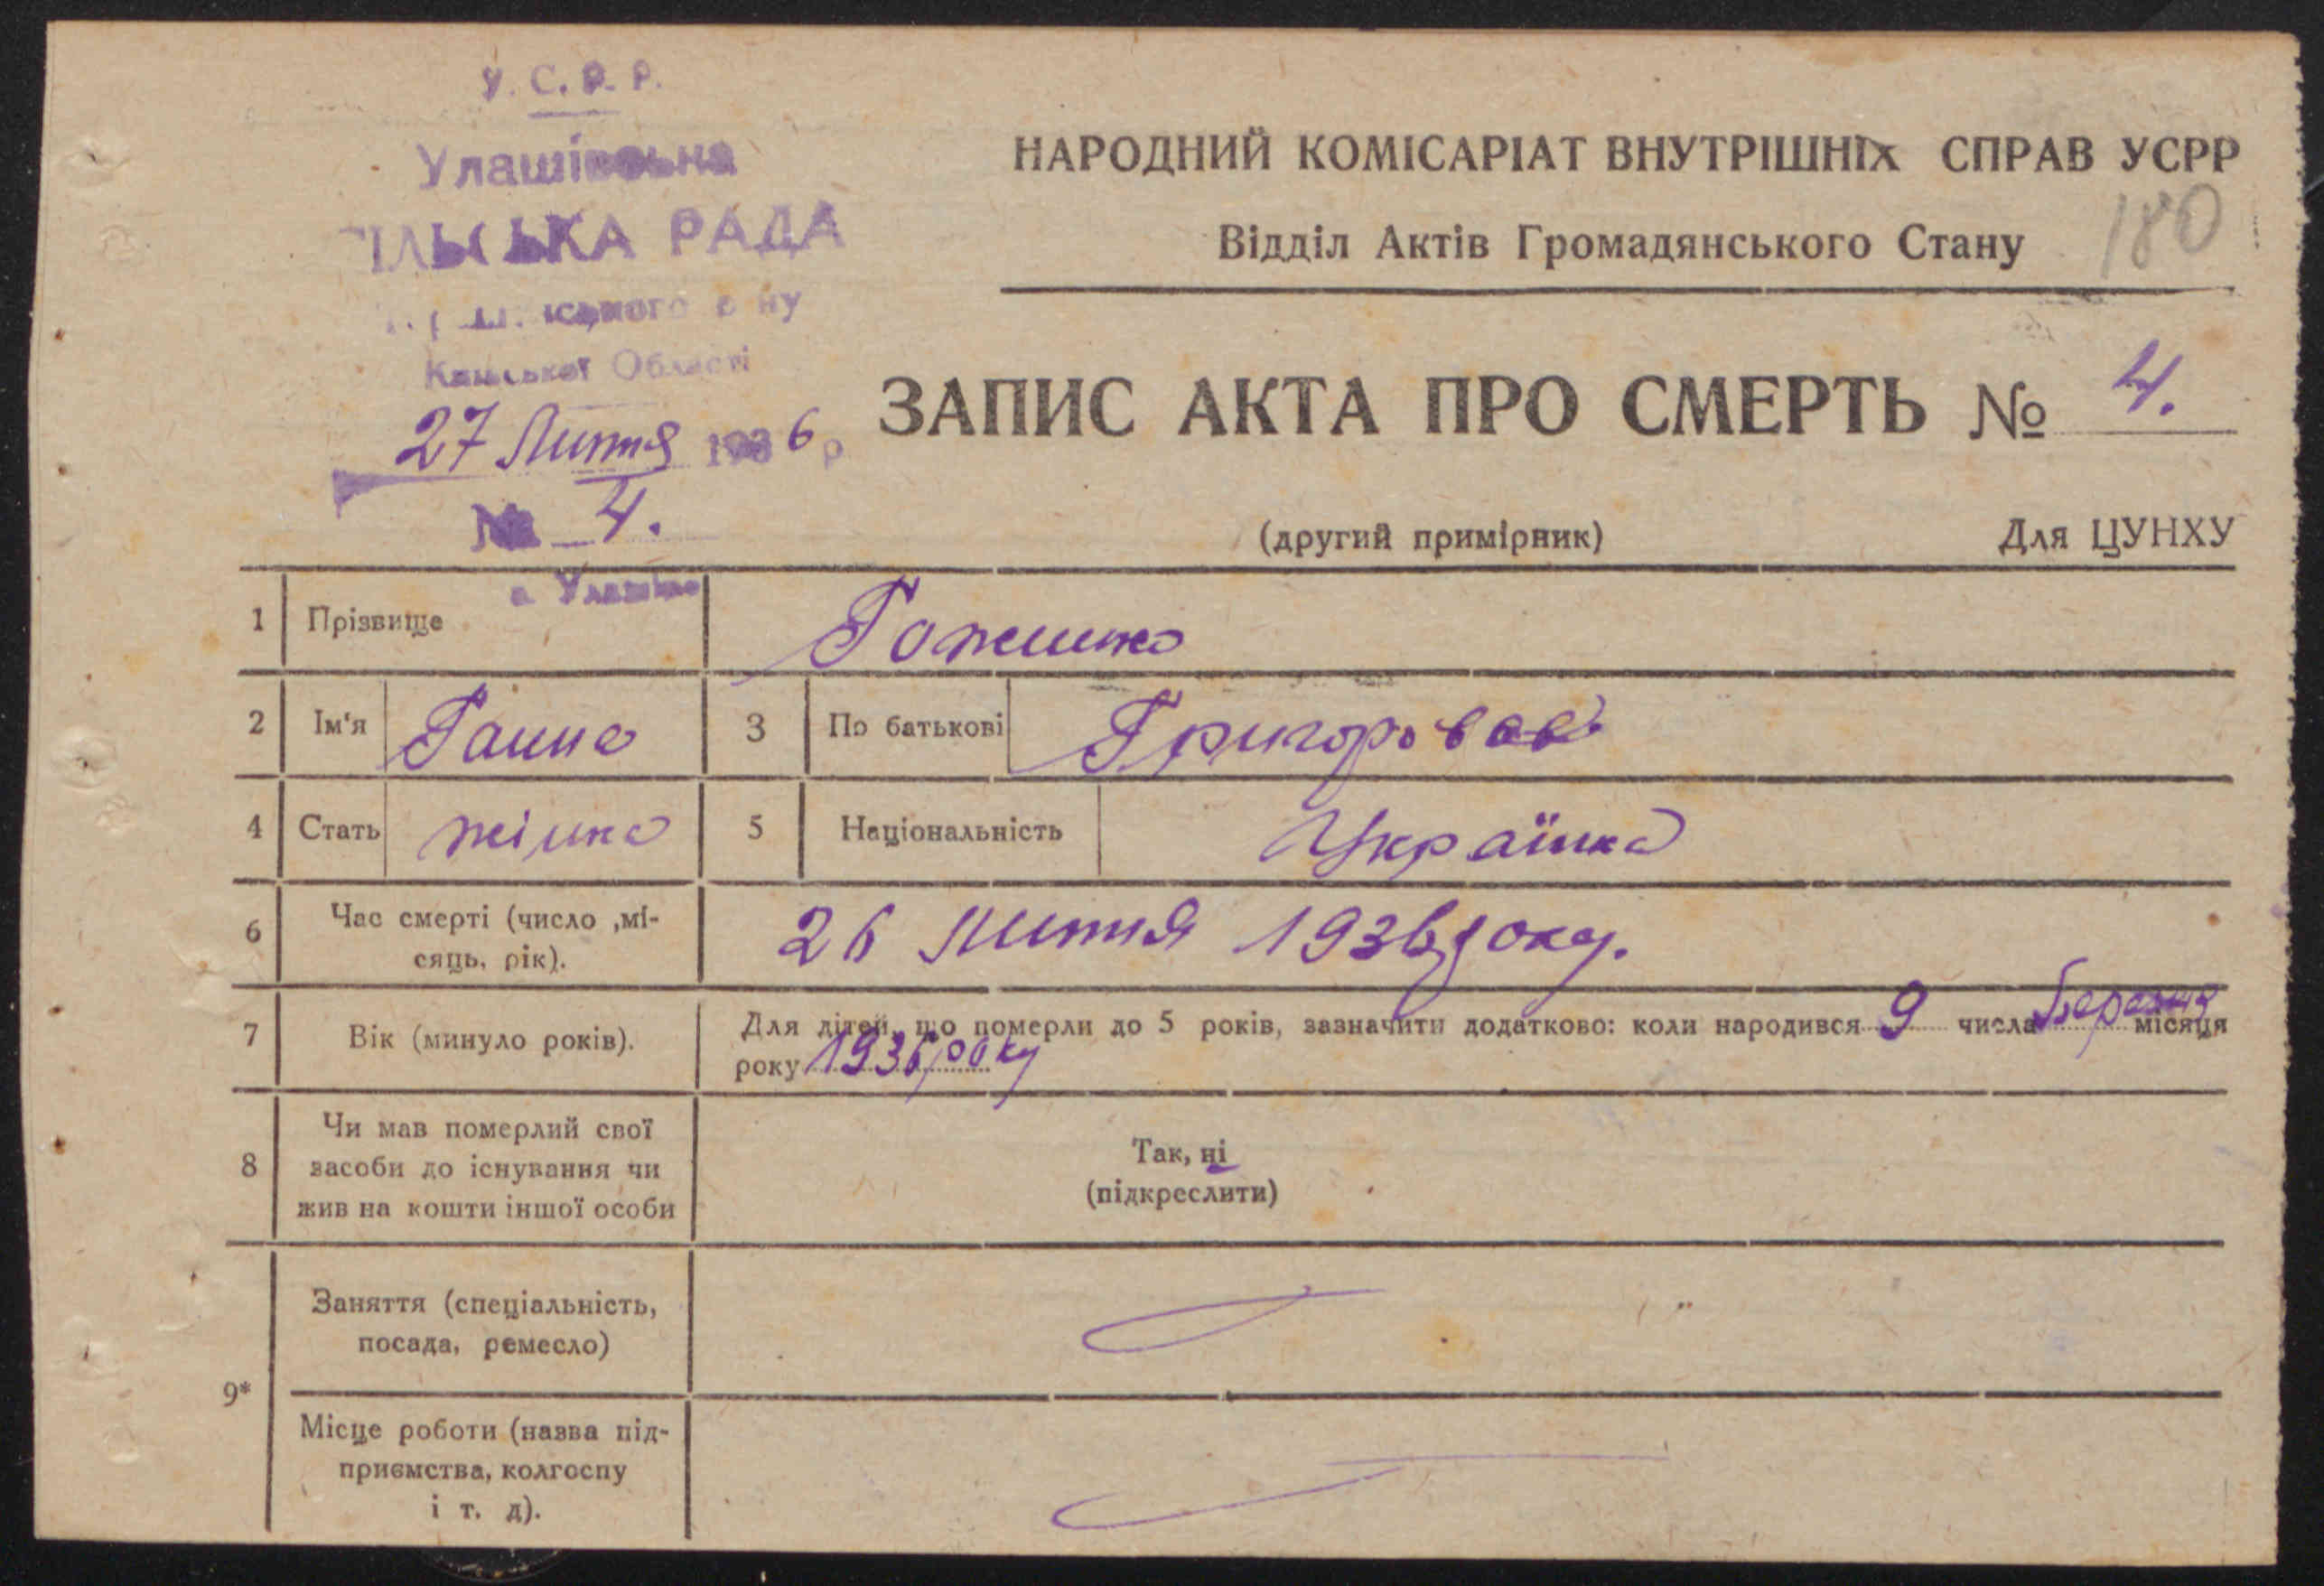 У.С.Р.Р.
Улашівська
СІЛЬСЬКА РАДА
Київської Області
27 Липня 1936 р
№ 4.
с. Улашівка
НАРОДНИЙ КОМІСАРІАТ ВНУТРІШНІХ СПРАВ УСРР
Відділ Актів Громадянського Стану
180
ЗАПИС АКТА ПРО СМЕРТЬ № 4.
(другий примірник) Для ЦУНХУ
1 Прізвище
2 Ім'я Ганна 3 По батькові
4 Стать жінка 5 Національність Українка
6 Час смерті (число ,мі-
сяць, рік). 26 Липня 1936 року.
7 Вік (минуло років). Для дітей, що померли до 5 років, зазначити додатково: коли народився 9 числа Березня місяця
року 1936 року
8 Чи мав померлий свої
засоби до існування чи
жив на кошти іншої особи
Так, ні
(підкреслити)
9*
Заняття (спеціальність,
посада, ремесло)
Місце роботи (назва під-
приємства, колгоспу
і т. д).